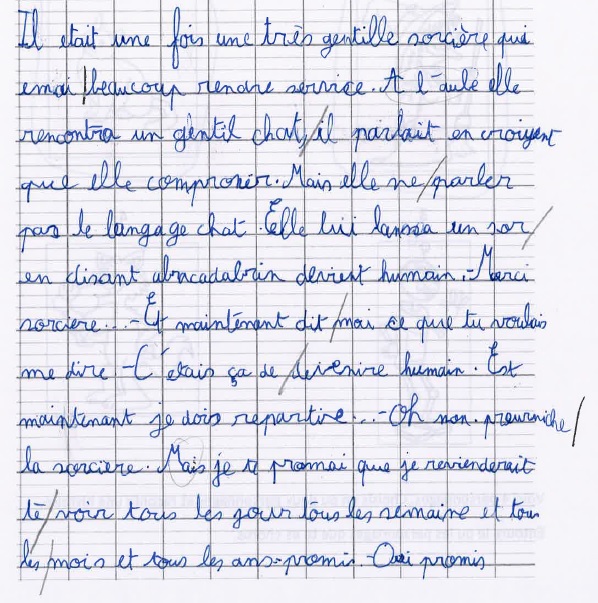 Il etait une fois une très gentille sorcière qui
emai beaucoup rendre service. A l'aube elle
rencontra un gentil chat, il parlait en croiyent
que elle comproner. Mais elle ne parler
pas le langage chat. Elle lui lanssa un sor
en disant abracadabrin devient humain. - Marci
sorciere... - Et maintenant dit moi ce que tu voulais
me dire - C'etais ça de devenire humain. Est
maintenant je dois repartire... - Oh non. pleurniche
la sorciere. Mais je te promai que je reviendrerait
te voir tous les jour tous les semaine et tous
les mois et tous les ans - promis. Oui promis